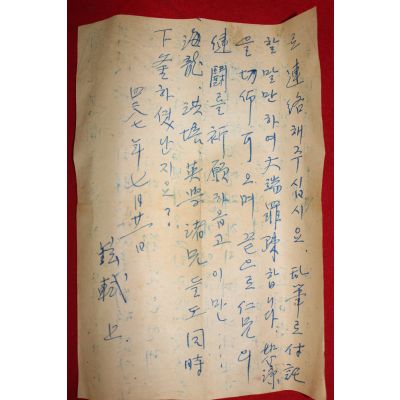 로 連絡해주십시오. 乱筆로 付記
할 말만 하여 大端罪悚합니다.
을 切仰하오며 끝으로 仁兄의
健鬪를 祈願하옵고 이만…
海龍. 洪培. 英學 諸兄들도 同時
下筆하였는지요?
四二八七年 七月 廿一日
軾 上.